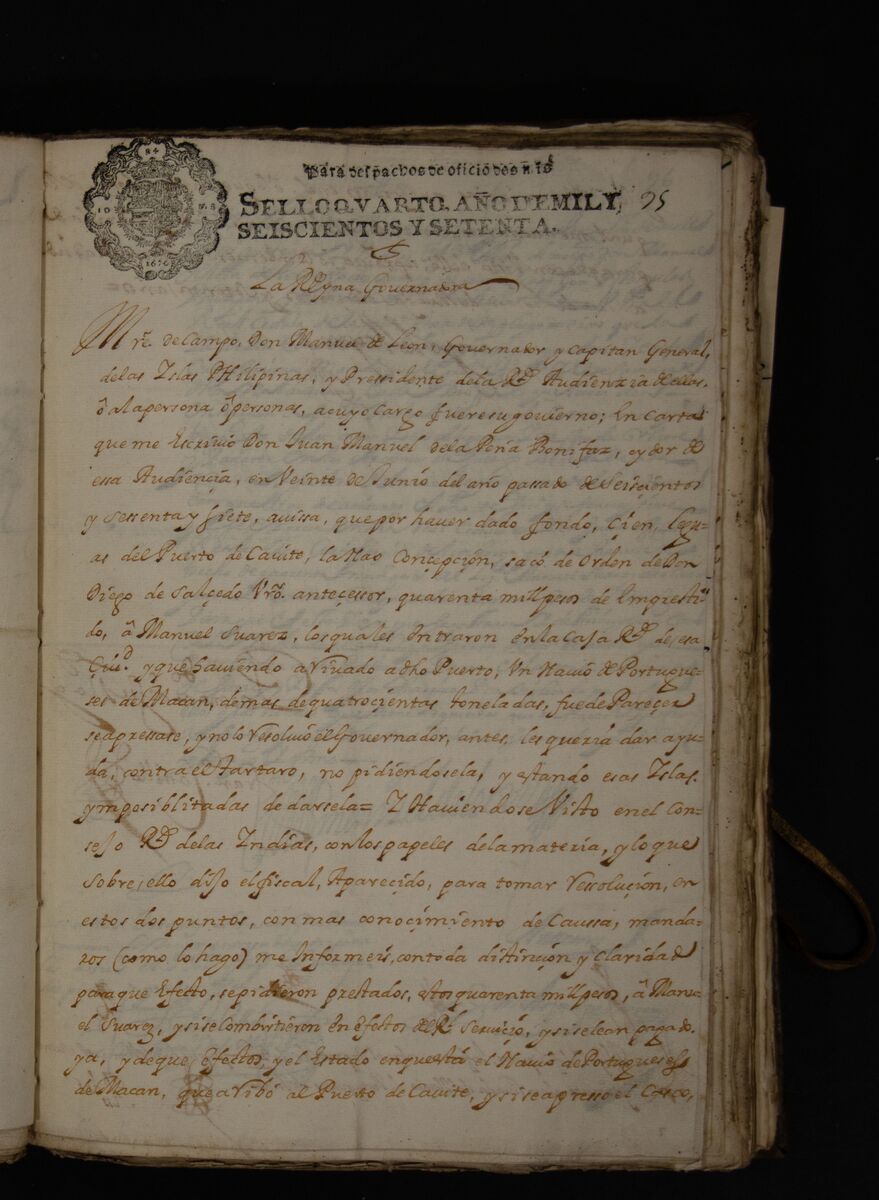 Para despachos de oficio dos mrs
SELLO QVARTO, AÑO DE MIL Y
SEISCIENTOS Y SETENTA.
95
1670
La Reyna Governadora
Mre. de Campo, Don Manuel de Leon, Governador y Capitan General,
de las Islas Philipinas, y Pressidente de la Rl Audienzia de ellas,
ô a la persona ô personas, a cuyo cargo fuere su govierno; En carta
que me Escrivio Don Juan Manuel de la Peña Bonifaz, oydor de
essa Audiencia, en Veinte de Junio del año passado de Seiscientos
y sessenta y siete, avissa, que por haver dado fondo, Çien legu-
as del Puerto de Cavite, la Nao Conçepçión, sacó de Orden de Don
Diego de Salçedo Vro. anteçessor, quarenta mill pesos de Emprestí-
do, â Manuel Suarez, los quales Entraron en la Caja Rl de, esa
Çiud. y que haviendo arrivado a dho Puerto, Un Navío de Portugue-
ses de Macan, de mas de quatroçientas toneladas, fue de Pareçer
se apressase, y no lo Ressolvió el Governador, antes, les queria dar ayu-
da, contra el Tartaro, no pidiendosela, y estando esas Islas,
ymposiblitadas de darsela= Y Haviendose Visto en el Con-
sejo Rl de las Indias, con los papeles de la materia, y lo que
sobre, ello dijo el fiscal, Aparecido, para tomar Ressolución, en
estos dos puntos, con mas conocimiento de Caussa, manda-
ros (como lo hago) me Informeis, con toda distinçion y Claridad
para que Efecto, se pidieron prestados, estos quarenta mill pesos, â Manu-
el Suarez, y si se combirtieron En efectos del Rl Serviçio, y si se le an pagado
ya, y de que, Efectos, y el Estado en que está el Navio de Portugueses
de Macan, que arribó al Puerto de Cavite, y si se apresso el Casco,